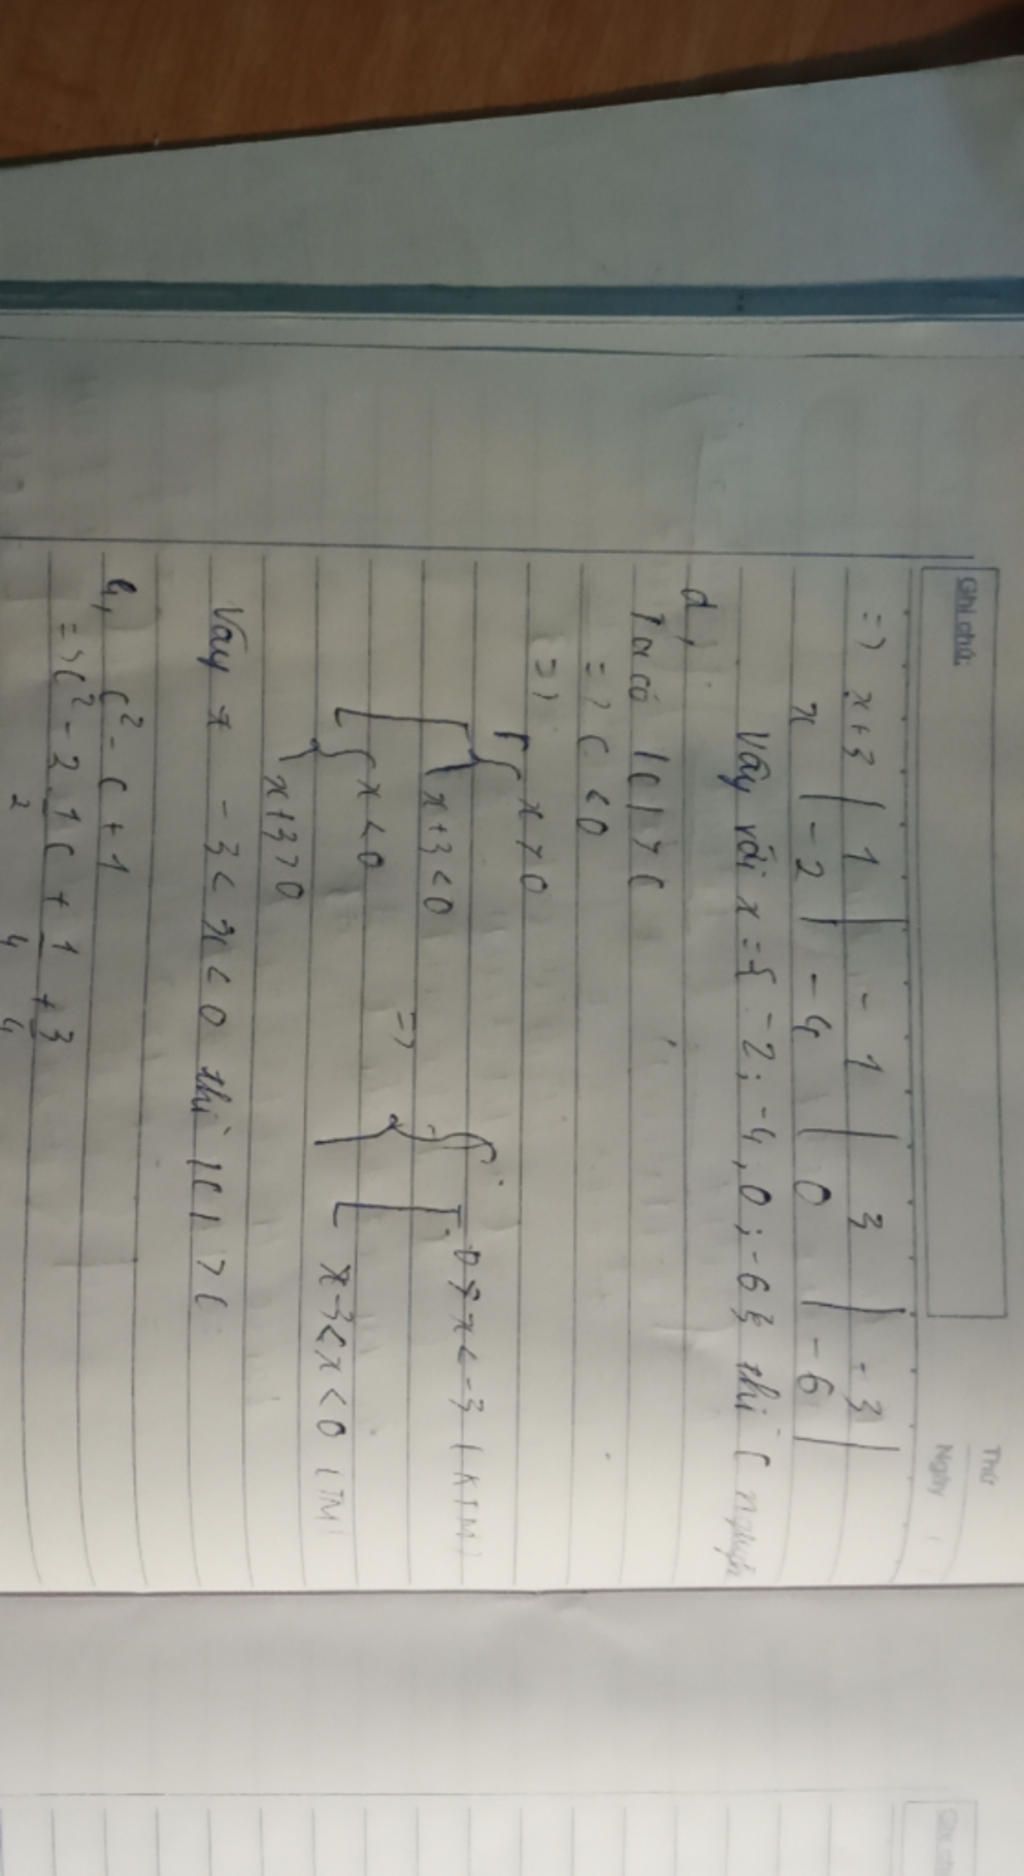 Ghi chú:
Thứ
Ngày
=> x+3 | 1 | -1 | 3 | -3 |
x | -2 | -4 | 0 | -6 |
Vậy với x = { -2 ; -4 , 0 ; -6 } thì C nguyên
d,
Ta có |C| > C
=> C < 0
=> [ { x > 0
{ x+3 < 0
=> [ 0 < x < -3 (KTM)
{ x < 0
{ x+3 > 0
[ x -3 < x < 0 (TM)
Vậy x -3 < x < 0 thì |C| > C
C² - C + 1
=> C² - 2 . 1/2 C + 1/4 + 3/4